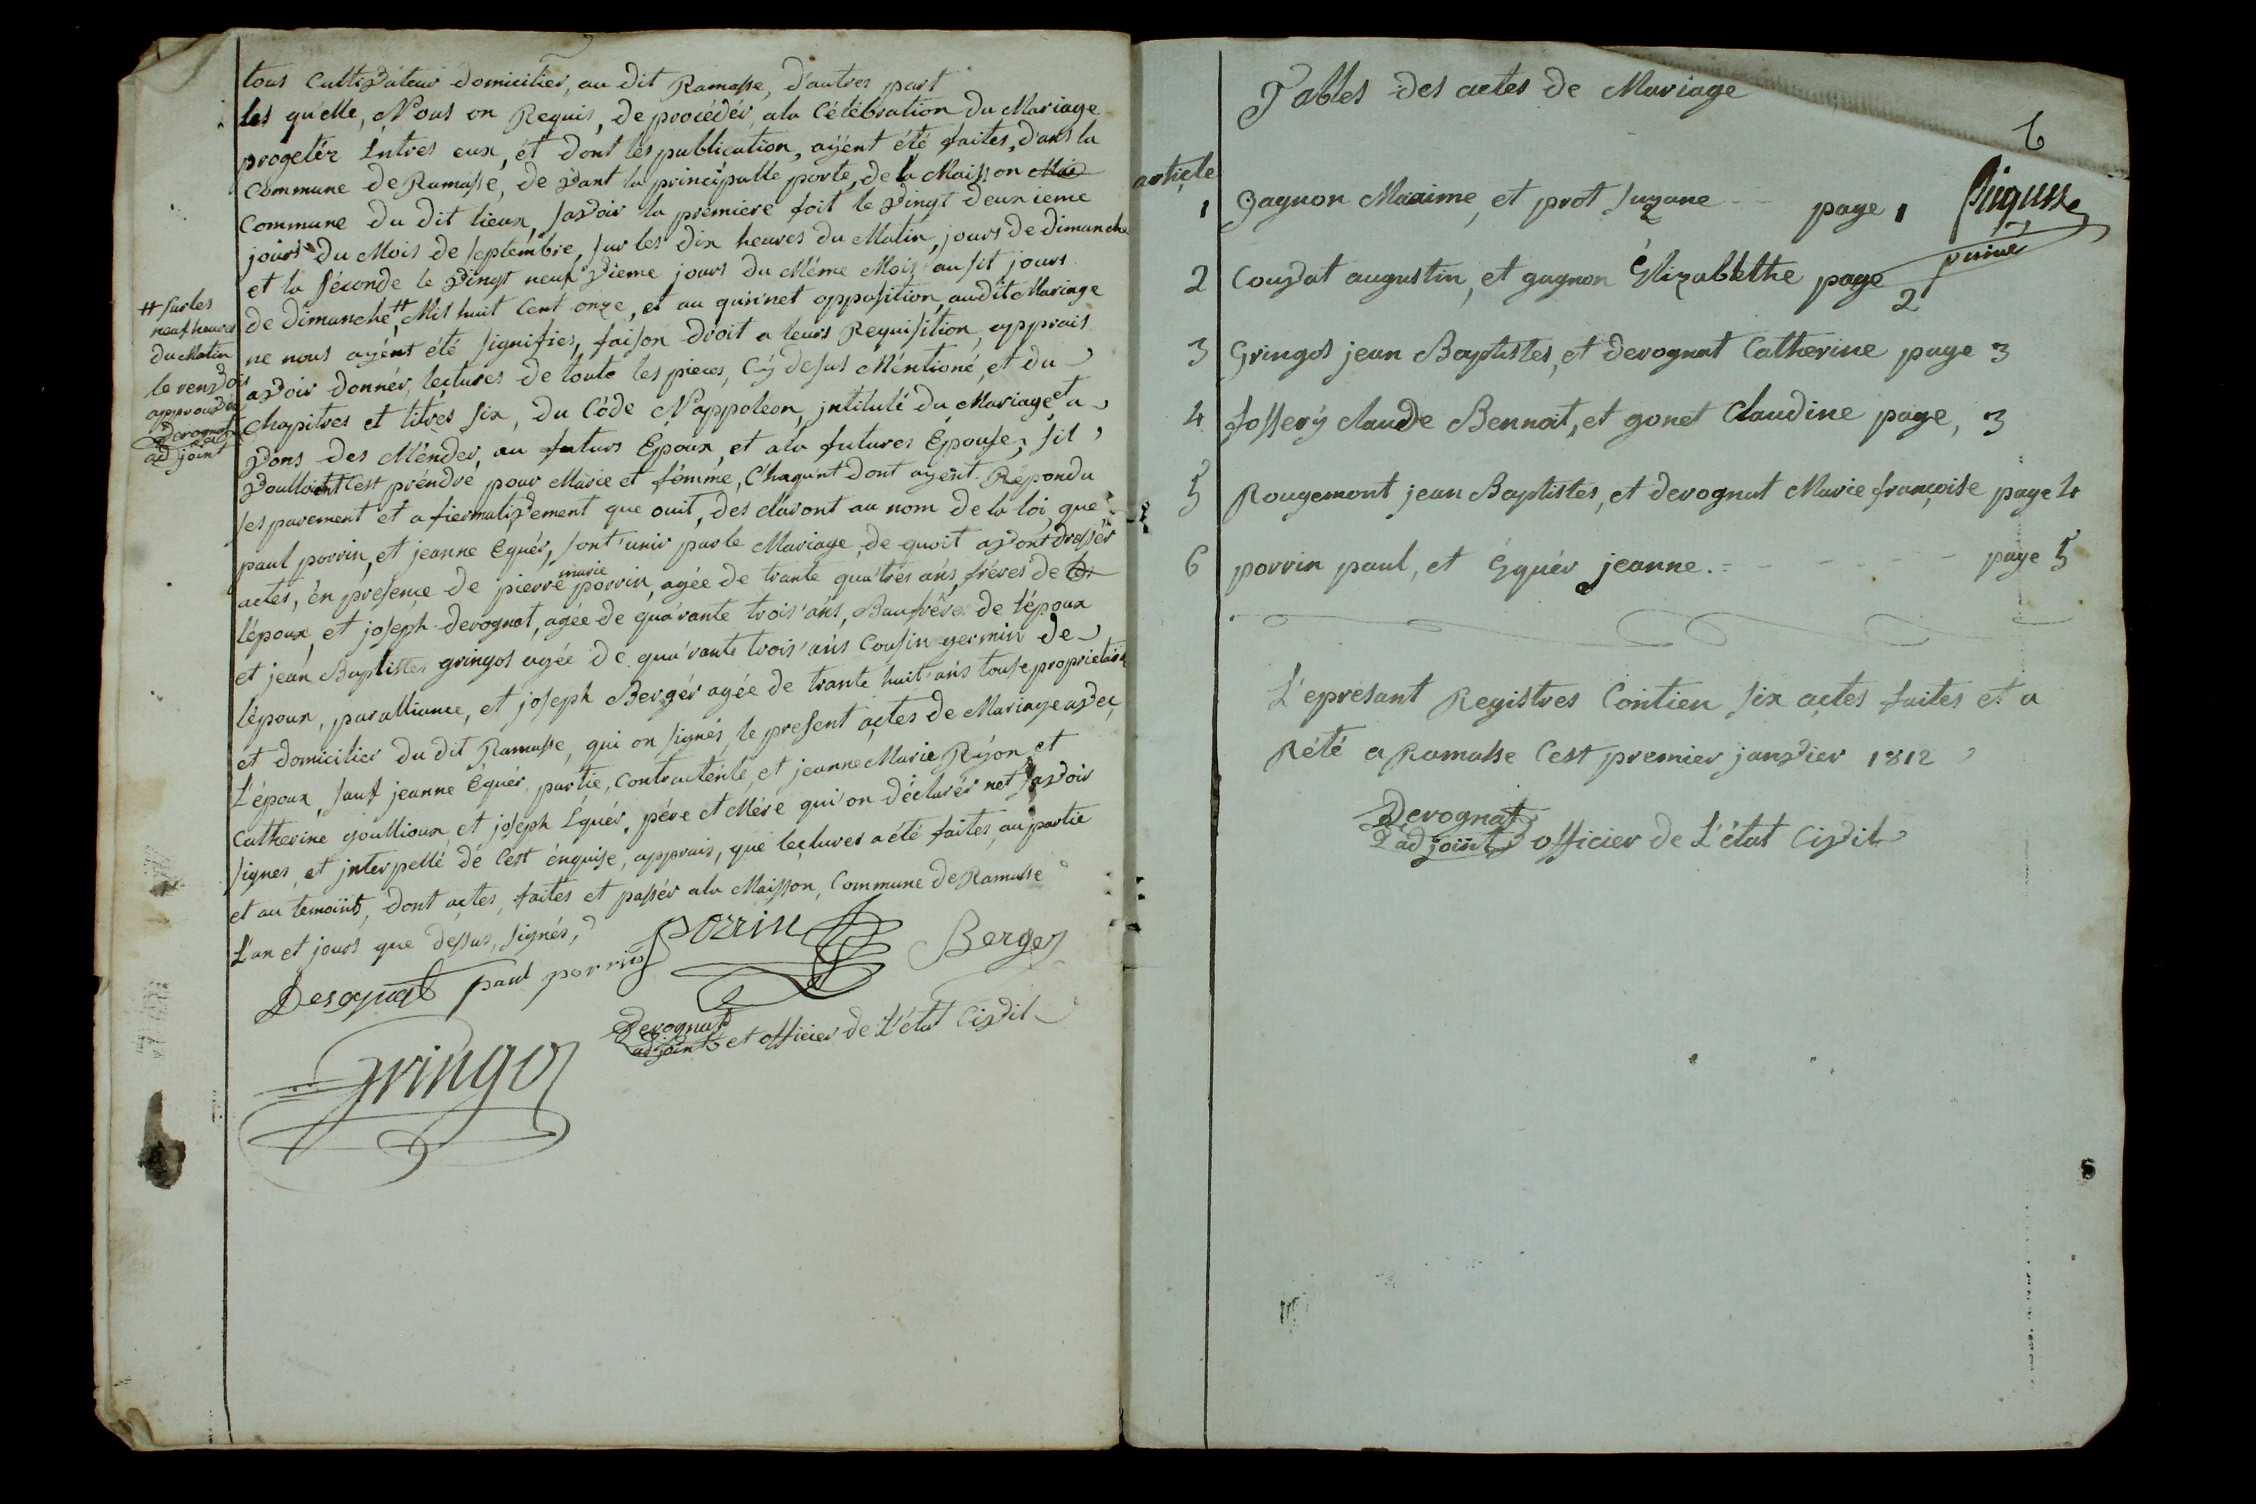 tous Cultivateur domicilier, au dit Ramasse, d'autres part
les qu'elle, Nous on Requis, de procédér, ala Célébration du Mariage
progetér Entres eux, ét dont les publication, ayént été faites, dans la
Commune de Ramasse, de vant la principalle porte, de la Maisson Mai
Commune du dit lieux, savoir la premiere foit le vingt deuxieme
jours du Mois de septembre, sur les dix heures du Matin, jours de dimanche
et la séconde le vingt neuf vieme jours du Méme Mois ausit jours
de dimanche, # Mil huit Cent onze, et au quinnet opposition, audit Mariage
ne nous ayént été signifies, faison droit a leurs Requisition, apprais
avoir donnér, leçtures de toute les pieces, Cy desus Méntioné, et du
Chapitres et titres six, du Códe Nappoléon, jntitulé du Mariage, et a
vons des Ménder, au futurs Époux, et ala futures Épouse, sil
voulloint Cest préndre pour Marie et fémme, Chaqunt dont ayent Répondu
sesparement et afiermativement que ouit, des claront au nom de la loi que
paul porrin, et jeanne Equér, sont unir par le Mariage, de quoit avont dressér
actes, én presençe de pierre marie porrin, agée de trante quatres ans, frères de
l'époux, et joseph devognat, agée de quarante trois ans, Baufrére de l'époux
et jean Baptistes gringos agée de quarante trois ans Cousin germin de
l'époux, par alliance, et joseph Bergér agée de trante huit ans touse proprietaire
et domicilier du dit Ramasse, qui on signés, le present açtes de Mariage aveç
L'époux, sauf jeanne Équér, partie, Contractente, et jeanne Marie Rajon et
Catherine goullioux et joseph Équér, pére et Mére qui on déclarér net savoir
signes, et jnterpellé de Cest énquise, apprais, que leçtures a été faites, au partie
et au temoints, dont açtes, faites et passér ala Maisson, Commune de Ramasse
L'an et jours que dessus, signés,
paul porrin porrin Berger
Devognat
adjoint et officier de L'état Civil
Gringos
# sur les
neuf heures
du Matin
le renvois
approuver
Devognat
adjoint
Tables des actes de Mariage
6
article
1 Gagnon Maxime, et prot suzane page 1
2 Couvat augustin, et gagnon Élizabethe page 2
3 Gringos jean Baptistes, et devognat Catherine page 3
4 fossery claude Bennoit, et gonet Claudine page, 3
5 Rougemont jean Baptistes, et devognat Marie françoise page 4
6 porrin paul, et Équér jeanne. page 5
L'epresant Registres Contien six açtes faites et a
Rété a Ramasse Cest premier janvier 1812
Devognat
adjoint officier de L'état Civil